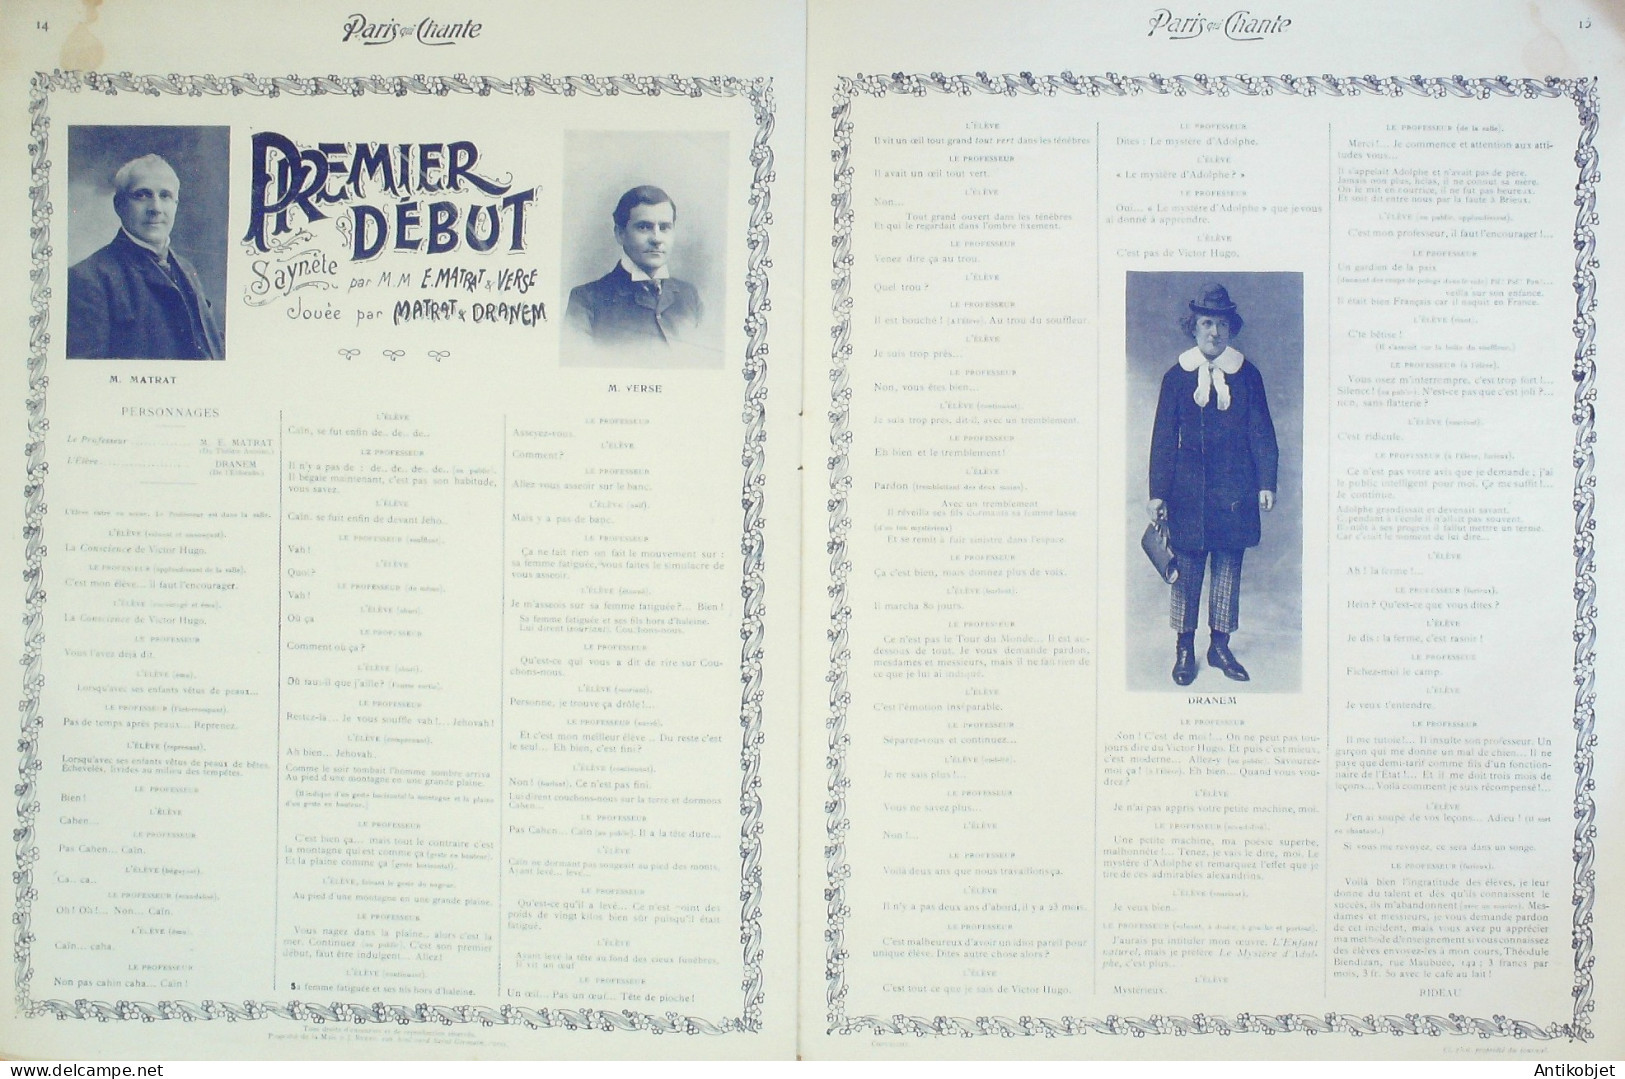 14
Paris qui Chante
PREMIER
DÉBUT
Saynète par M.M E. MATRAT & VERSE
Jouée par MATRAT & DRANEM
M. MATRAT
M. VERSE
PERSONNAGES
Le Professeur .......... M. E. MATRAT
L'Élève .......... DRANEM
La Conscience de Victor Hugo.
C'est mon élève... il faut l'encourager.
La Conscience de Victor Hugo.
LE PROFESSEUR
Vous l'avez déjà dit.
L'ÉLÈVE (ému).
Lorsqu'avec ses enfants vêtus de peaux...
LE PROFESSEUR (l'interrompant).
Pas de temps après peaux... Reprenez.
L'ÉLÈVE (reprenant).
Lorsqu'avec ses enfants vêtus de peaux de bêtes.
Échevelés, livides au milieu des tempêtes.
LE PROFESSEUR
Bien !
L'ÉLÈVE
Cahen...
LE PROFESSEUR
Pas Cahen... Caïn.
L'ÉLÈVE (bégayant).
Ca... ca...
LE PROFESSEUR (scandalisé).
Oh! Oh!... Non... Caïn.
L'ÉLÈVE (ému).
Caïn... caha.
LE PROFESSEUR
Non pas cahin caha... Caïn !
L'ÉLÈVE
Caïn, se fut enfin de.. de.. de..
LE PROFESSEUR
Il n'y a pas de : de.. de.. de.. de.. (au public).
Il bégaie maintenant, c'est pas son habitude,
vous savez.
L'ÉLÈVE
Caïn, se fuit enfin de devant Jeho..
LE PROFESSEUR (soufflant).
Vah !
L'ÉLÈVE
Quoi ?
LE PROFESSEUR (du même).
Vah !
L'ÉLÈVE
Où ça
LE PROFESSEUR
Comment où ça ?
L'ÉLÈVE
Où faut-il que j'aille ? (Fausse sortie).
LE PROFESSEUR
Restez-là... Je vous souffle vah !... Jehovah !
L'ÉLÈVE (comprenant).
Ah bien... Jehovah.
Comme le soir tombait l'homme sombre arriva
Au pied d'une montagne en une grande plaine.
(Il indique d'un geste horizontal la montagne et la plaine
d'un geste en hauteur.)
LE PROFESSEUR
C'est bien ça... mais tout le contraire c'est
la montagne qui est comme ça (geste en hauteur).
Et la plaine comme ça (geste horizontal).
L'ÉLÈVE, faisant le geste du nageur.
Au pied d'une montagne en une grande plaine.
LE PROFESSEUR
Vous nagez dans la plaine.. alors c'est la
mer. Continuez (au public). C'est son premier
début, faut être indulgent... Allez !
L'ÉLÈVE (continuant).
Sa femme fatiguée et ses fils hors d'haleine.
LE PROFESSEUR
Asseyez-vous.
L'ÉLÈVE
Comment ?
LE PROFESSEUR
Allez vous asseoir sur le banc.
L'ÉLÈVE (naïf).
Mais y a pas de banc.
LE PROFESSEUR
Ça ne fait rien on fait le mouvement sur :
sa femme fatiguée, vous faites le simulacre de
vous asseoir.
L'ÉLÈVE (étonné).
Je m'asseois sur sa femme fatiguée ?... Bien !
Sa femme fatiguée et ses fils hors d'haleine.
Lui dirent (souriant). Couchons-nous.
LE PROFESSEUR
Qu'est-ce qui vous a dit de rire sur Cou-
chons-nous.
L'ÉLÈVE (souriant).
Personne, je trouve ça drôle !...
LE PROFESSEUR (navré).
Et c'est mon meilleur élève .. Du reste c'est
le seul... Eh bien, c'est fini ?
L'ÉLÈVE (continuant).
Non ! (hurlant). Ce n'est pas fini.
Lui dirent couchons-nous sur la terre et dormons
Cahen...
LE PROFESSEUR
Pas Cahen... Caïn (au public). Il a la tête dure...
L'ÉLÈVE
Caïn ne dormant pas songeait au pied des monts.
Ayant levé... levé...
LE PROFESSEUR
Qu'est-ce qu'il a levé... Ce n'est point des
poids de vingt kilos bien sûr puisqu'il était
fatigué.
L'ÉLÈVE
Ayant levé la tête au fond des cieux funèbres.
Il vit un œuf
LE PROFESSEUR
Un œil... Pas un œuf... Tête de pioche !
Tous droits d'exécution et de reproduction réservés.
Paris qui Chante
15
L'ÉLÈVE
Il vit un œil tout grand tout vert dans les ténèbres
LE PROFESSEUR
Il avait un œil tout vert.
L'ÉLÈVE
Non...
Tout grand ouvert dans les ténèbres
Et qui le regardait dans l'ombre fixement.
LE PROFESSEUR
Venez dire ça au trou.
L'ÉLÈVE
Quel trou ?
LE PROFESSEUR
Il est bouché ! (à l'élève). Au trou du souffleur.
L'ÉLÈVE
Je suis trop près...
LE PROFESSEUR
Non, vous êtes bien...
L'ÉLÈVE (continuant).
Je suis trop près, dit-il, avec un tremblement.
LE PROFESSEUR
Eh bien et le tremblement !
L'ÉLÈVE
Pardon (tremblotant des deux mains).
Avec un tremblement
Il réveilla ses fils dormants sa femme lasse
(d'un ton mystérieux)
Et se remit à fuir sinistre dans l'espace.
LE PROFESSEUR
Ça c'est bien, mais donnez plus de voix.
L'ÉLÈVE (hurlant).
Il marcha 80 jours.
LE PROFESSEUR
Ce n'est pas le Tour du Monde... Il est au-
dessous de tout. Je vous demande pardon,
mesdames et messieurs, mais il ne fait rien de
ce que je lui ai indiqué.
L'ÉLÈVE
C'est l'émotion inséparable.
LE PROFESSEUR
Séparez-vous et continuez...
Je ne sais plus !...
LE PROFESSEUR
Vous ne savez plus...
L'ÉLÈVE
Non !...
LE PROFESSEUR
Voilà deux ans que nous travaillons ça.
L'ÉLÈVE
Il n'y a pas deux ans d'abord, il y a 23 mois.
LE PROFESSEUR
C'est malheureux d'avoir un idiot pareil pour
unique élève. Dites autre chose alors ?
L'ÉLÈVE
C'est tout ce que je sais de Victor Hugo.
LE PROFESSEUR
Dites : Le mystère d'Adolphe.
L'ÉLÈVE
« Le mystère d'Adolphe ? »
LE PROFESSEUR
Oui... « Le mystère d'Adolphe » que je vous
ai donné à apprendre.
L'ÉLÈVE
C'est pas de Victor Hugo.
DRANEM
LE PROFESSEUR
Non ! C'est de moi !... On ne peut pas tou-
jours dire du Victor Hugo. Et puis c'est mieux,
c'est moderne... Allez-y (au public). Savourez-
moi ça ! (à l'élève). Eh bien... Quand vous vou-
drez ?
L'ÉLÈVE
Je n'ai pas appris votre petite machine, moi.
LE PROFESSEUR (scandalisé).
Une petite machine, ma poésie superbe,
malhonnête !... Tenez, je vais le dire, moi. Le
mystère d'Adolphe et remarquez l'effet que je
tire de ces admirables alexandrins.
Je veux bien..
LE PROFESSEUR (saluant, à droite, à gauche et partout).
J'aurais pu intituler mon œuvre. L'Enfant
naturel, mais je préfère Le Mystère d'Adol-
phe, c'est plus...
L'ÉLÈVE
Mystérieux.
LE PROFESSEUR (de la salle).
Merci !... Je commence et attention aux atti-
tudes vous...
Il s'appelait Adolphe et n'avait pas de père.
Jamais non plus, hélas, il ne connut sa mère.
On le mit en nourrice, il ne fut pas heureux.
Et soit dit entre nous par la faute à Brieux.
L'ÉLÈVE (au public, applaudissant).
C'est mon professeur, il faut l'encourager !...
LE PROFESSEUR
Un gardien de la paix
veilla sur son enfance.
Il était bien Français car il naquit en France.
C'te bêtise !
(Il s'assoit sur la boîte du souffleur.)
LE PROFESSEUR (à l'élève).
Vous osez m'interrompre, c'est trop fort !...
Silence ! (au public). N'est-ce pas que c'est joli ?...
non, sans flatterie ?
C'est ridicule.
LE PROFESSEUR (à l'élève, furieux).
Ce n'est pas votre avis que je demande ; j'ai
le public intelligent pour moi. Ça me suffit !...
Je continue.
Adolphe grandissait et devenait savant.
Cependant à l'école il n'allait pas souvent.
Bientôt à ses progrès il fallut mettre un terme.
Car c'était le moment de lui dire...
L'ÉLÈVE
Ah ! la ferme !...
LE PROFESSEUR (furieux).
Hein ? Qu'est-ce que vous dites ?
L'ÉLÈVE
Je dis : la ferme, c'est rasoir !
LE PROFESSEUR
Fichez-moi le camp.
L'ÉLÈVE
Je veux t'entendre.
LE PROFESSEUR
Il me tutoie !... Il insulte son professeur. Un
garçon qui me donne un mal de chien... Il ne
paye que demi-tarif comme fils d'un fonction-
naire de l'État !... Et il me doit trois mois de
leçons... Voilà comment je suis récompensé !...
L'ÉLÈVE
J'en ai soupé de vos leçons... Adieu ! (Il sort
en chantant.)
Si vous me revoyez, ce sera dans un songe.
LE PROFESSEUR (furieux).
Voilà bien l'ingratitude des élèves, je leur
donne du talent et dès qu'ils connaissent le
succès, ils m'abandonnent. Mes-
dames et messieurs, je vous demande pardon
de cet incident, mais vous avez pu apprécier
ma méthode d'enseignement si vous connaissez
des élèves envoyez-les à mon cours, Théodule
Biendizan, rue Maubuée, 142 ; 3 francs par
mois, 3 fr. 50 avec le café au lait !
RIDEAU
Antikobjet